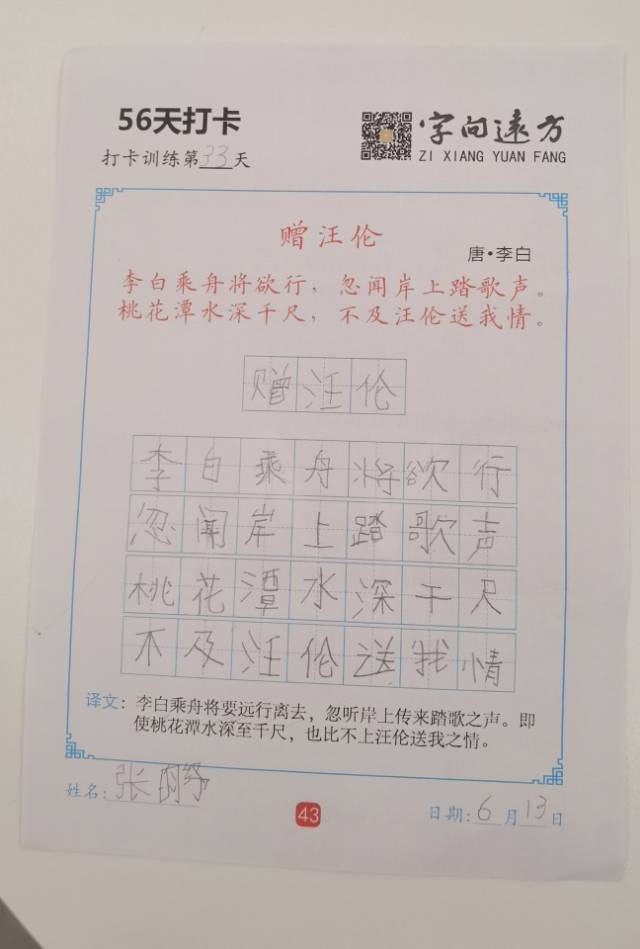 56天打卡
打卡训练第33天
字向远方
ZI XIANG YUAN FANG
赠汪伦
唐·李白
李白乘舟将欲行，忽闻岸上踏歌声。
桃花潭水深千尺，不及汪伦送我情。
赠汪伦
李白乘舟将欲行
忽闻岸上踏歌声
桃花潭水深千尺
不及汪伦送我情
译文：李白乘舟将要远行离去，忽听岸上传来踏歌之声。即
使桃花潭水深至千尺，也比不上汪伦送我之情。
姓名：张
43
日期：6月13日